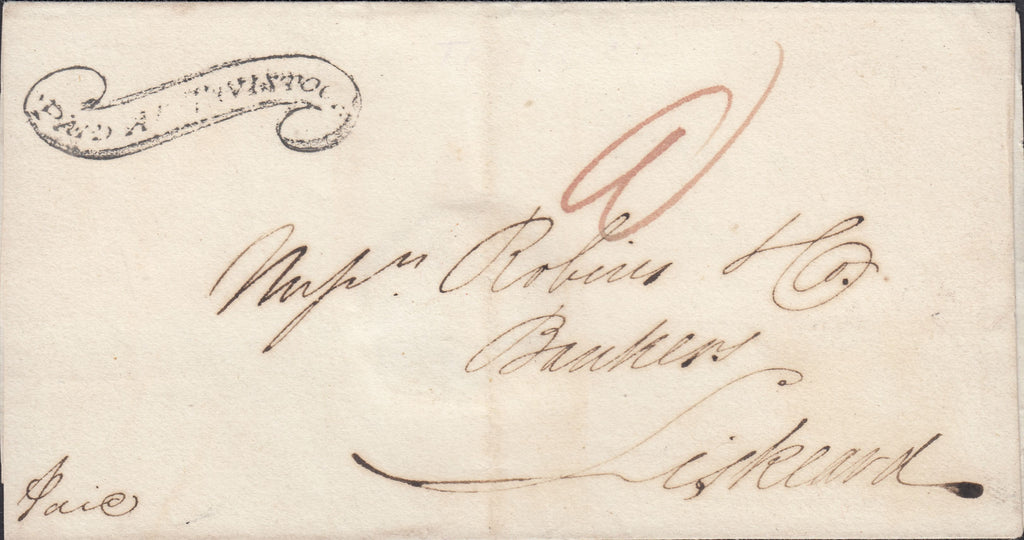 PAID AT TAVISTOCK
Messrs Robins & Co.
Bankers
Liskeard
Paid